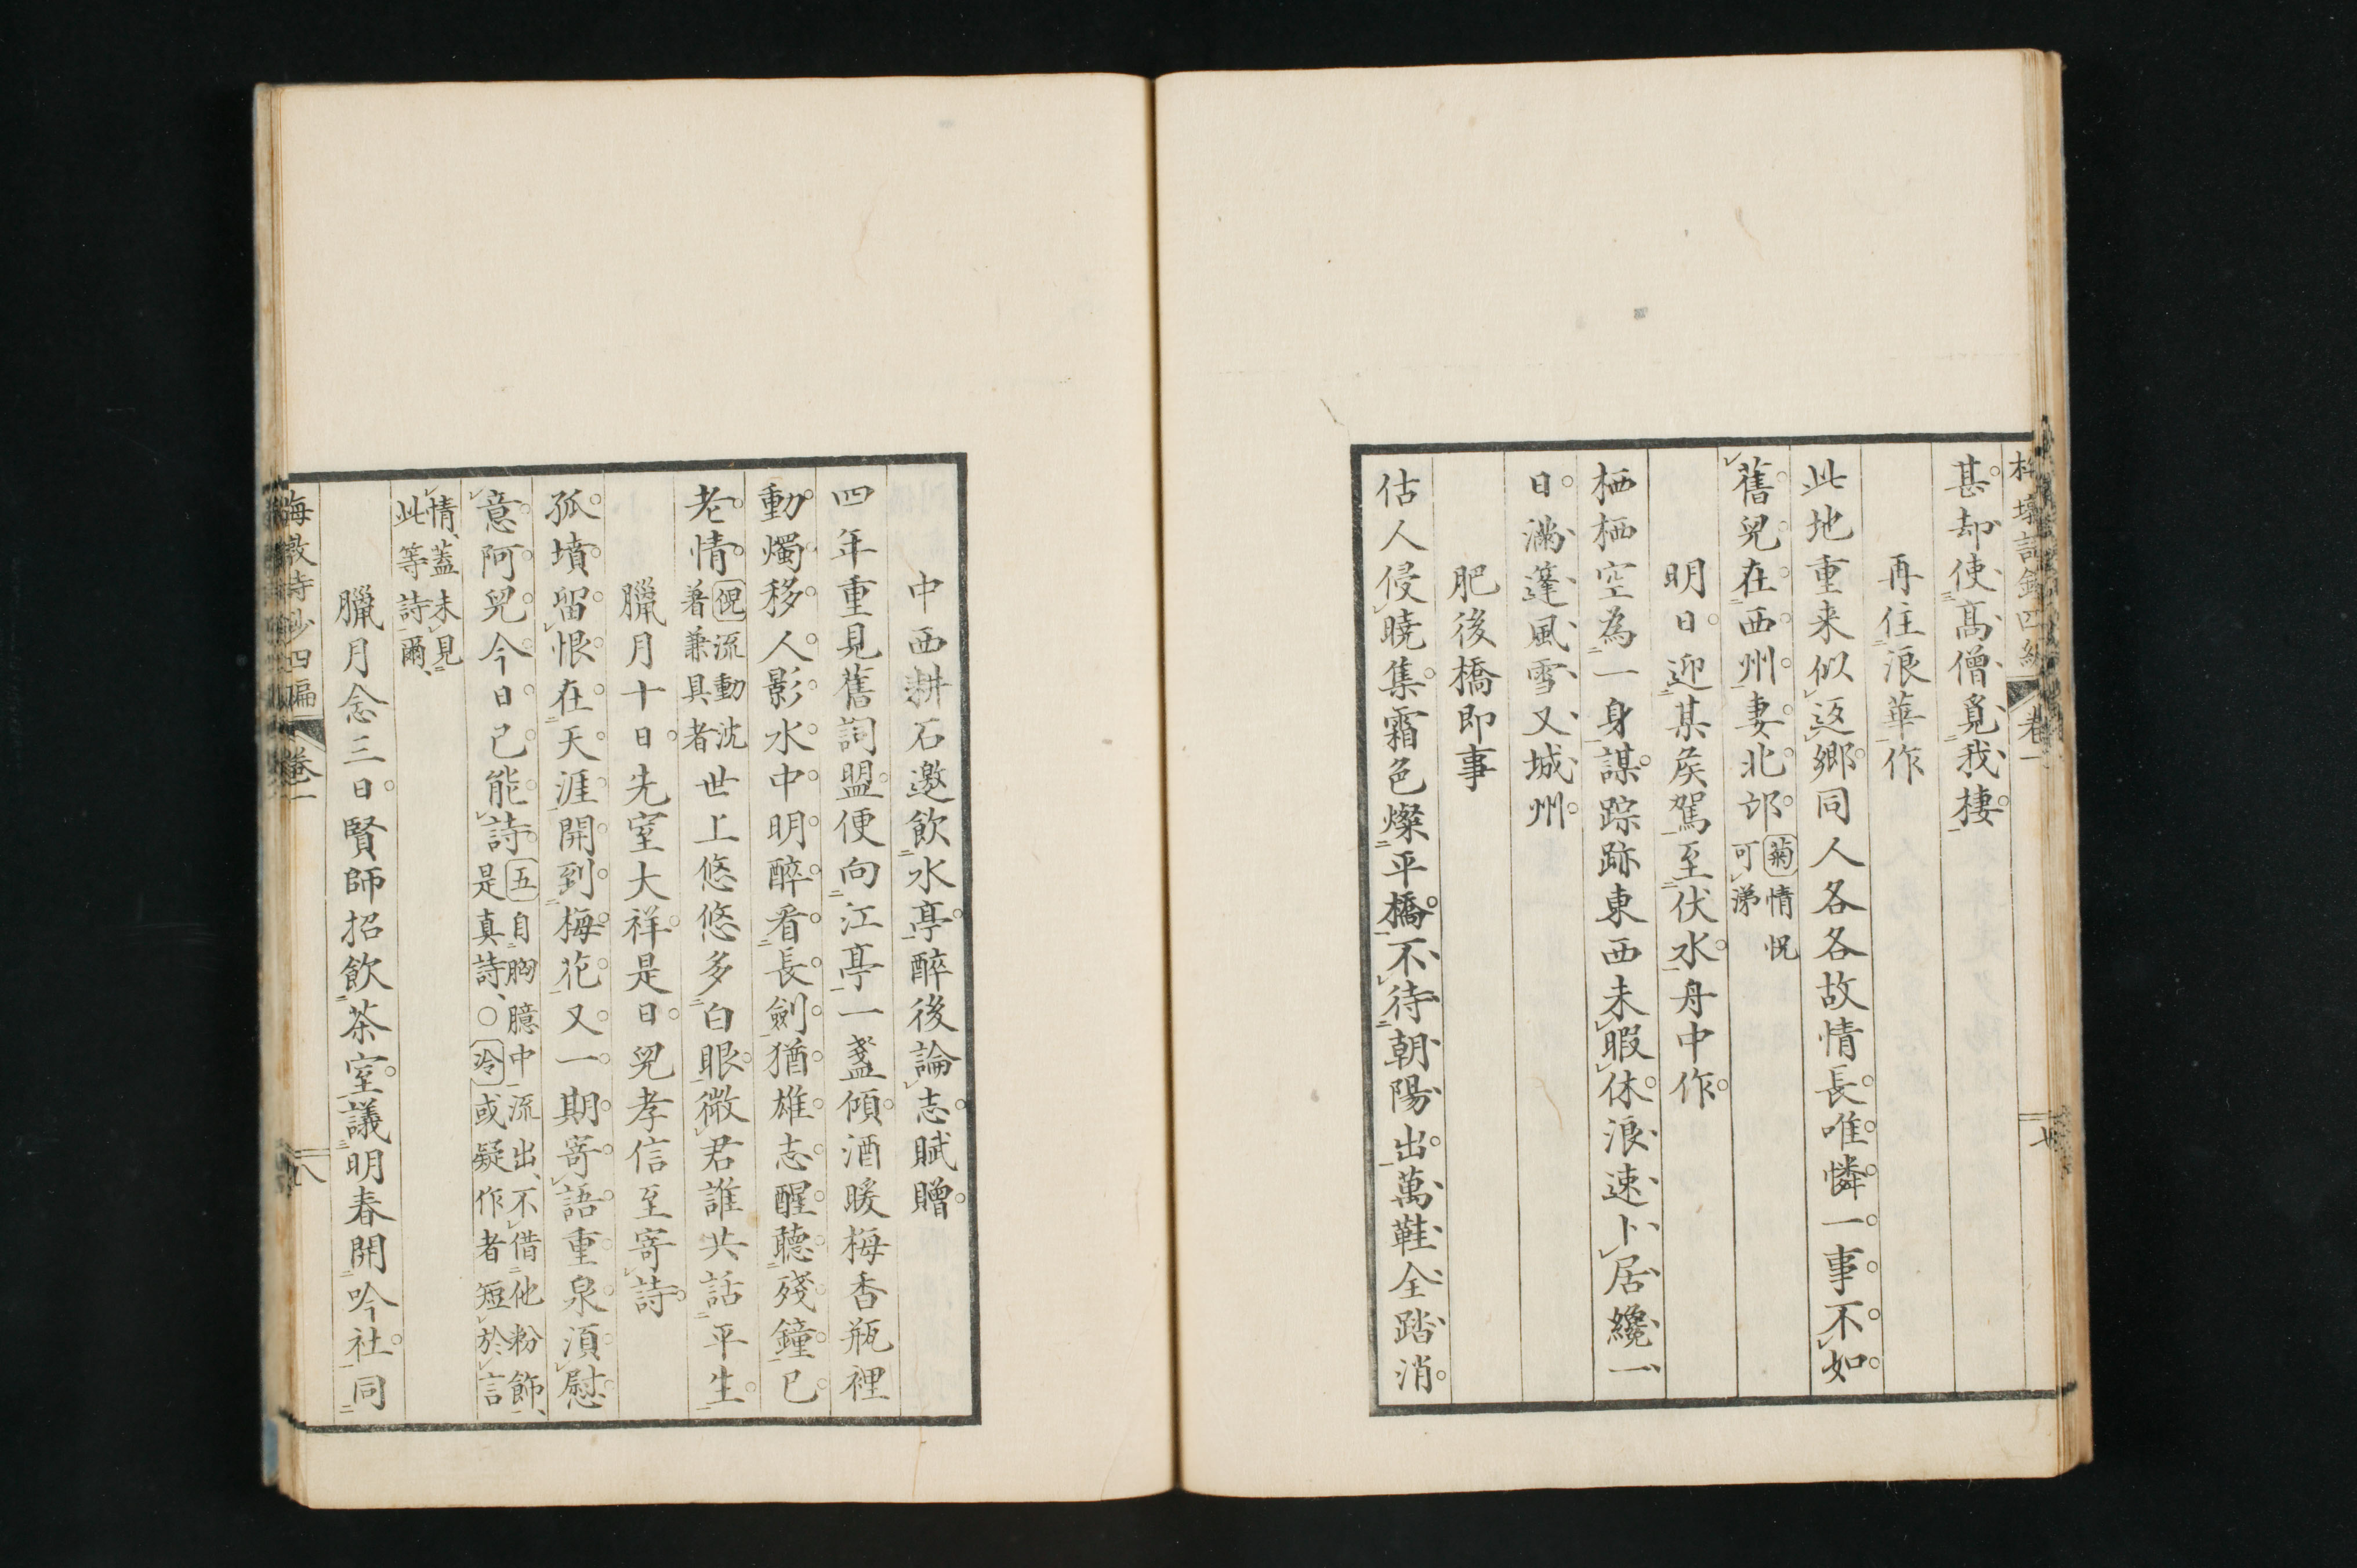 甚却使高僧覓我棲
再住浪華作
此地重来似返郷同人各各故情長唯憐一事不如
舊兒在西州妻北邙
菊情怳
可涕
明日迎某矦駕至伏水舟中作
栖栖空為一身謀踪跡東西未暇休浪速卜居纔一
日滿篷風雪又城州
肥後橋即事
估人侵曉集霜色燦平橋不待朝陽出萬鞋全踏消
卷一
七
中西耕石邀飲水亭醉後論志賦贈
四年重見舊詞盟便向江亭一盞傾酒暖梅香瓶裡
動燭移人影水中明醉看長劍猶雄志醒聽殘鐘已
老情
流動沈
着兼具者
世上悠悠多白眼微君誰共話平生
臘月十日先室大祥是日兒孝信至寄詩
孤墳留恨在天涯開到梅花又一期寄語重泉須慰
意阿兒今日已能詩
五自胸臆中流出、不借他粉飾、
是真詩、○冷或疑作者短於言
情、蓋未見
此等詩爾、
臘月念三日賢師招飲茶室議明春開吟社同
詩鈔四編
卷一
八